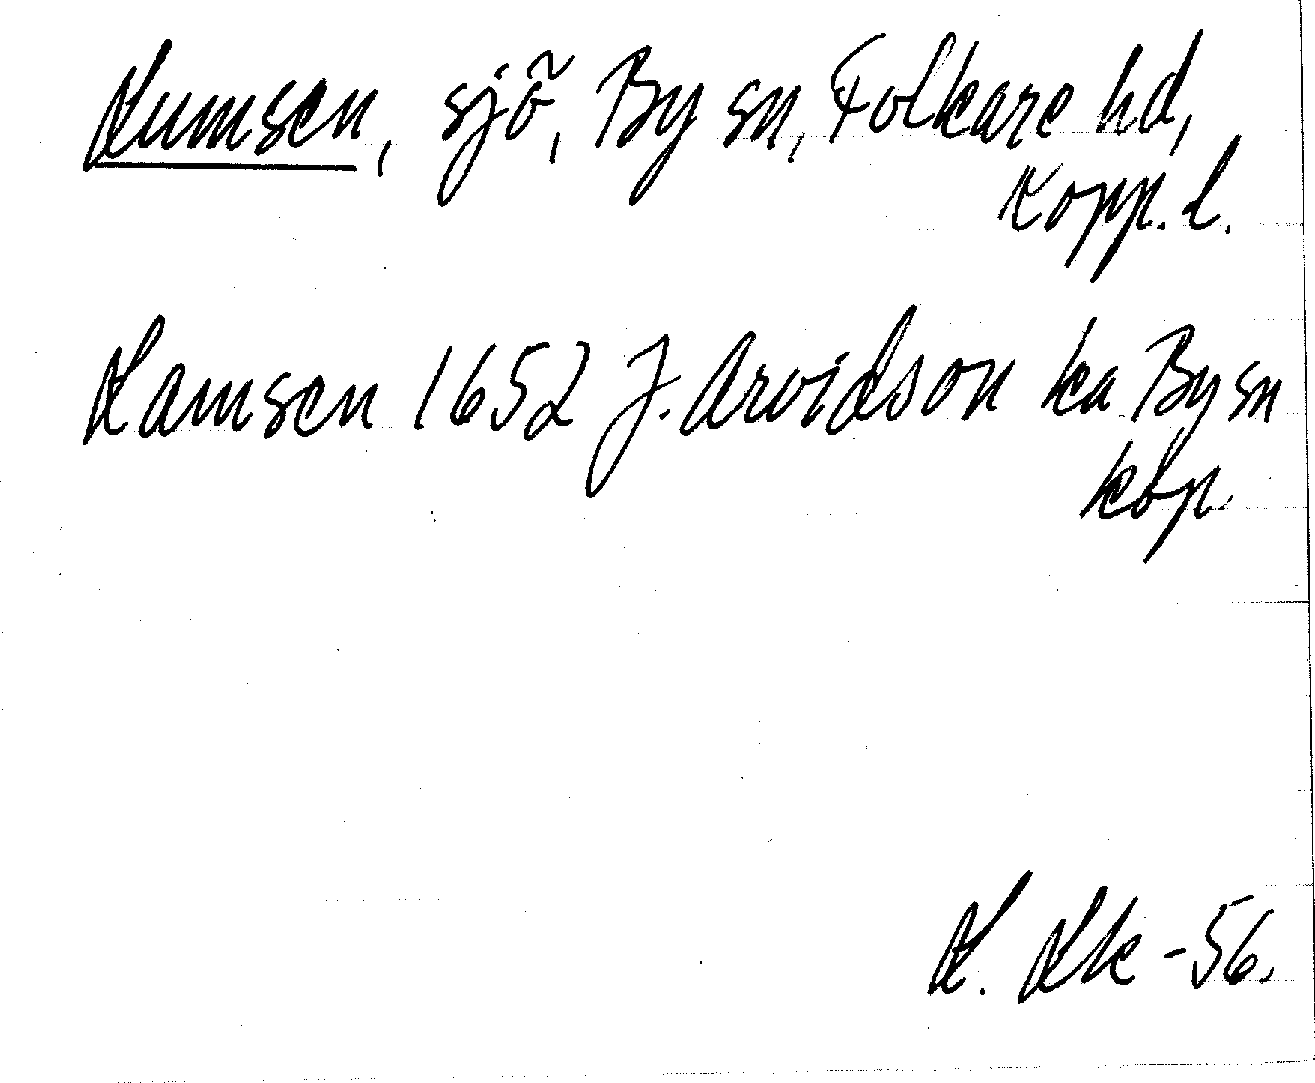 Kumsen, sjö, By sn, Folkare hd,
Kopp. l.
Kamsen 1652 J. Arvidson ka By sn
kop
K. Kk -56.